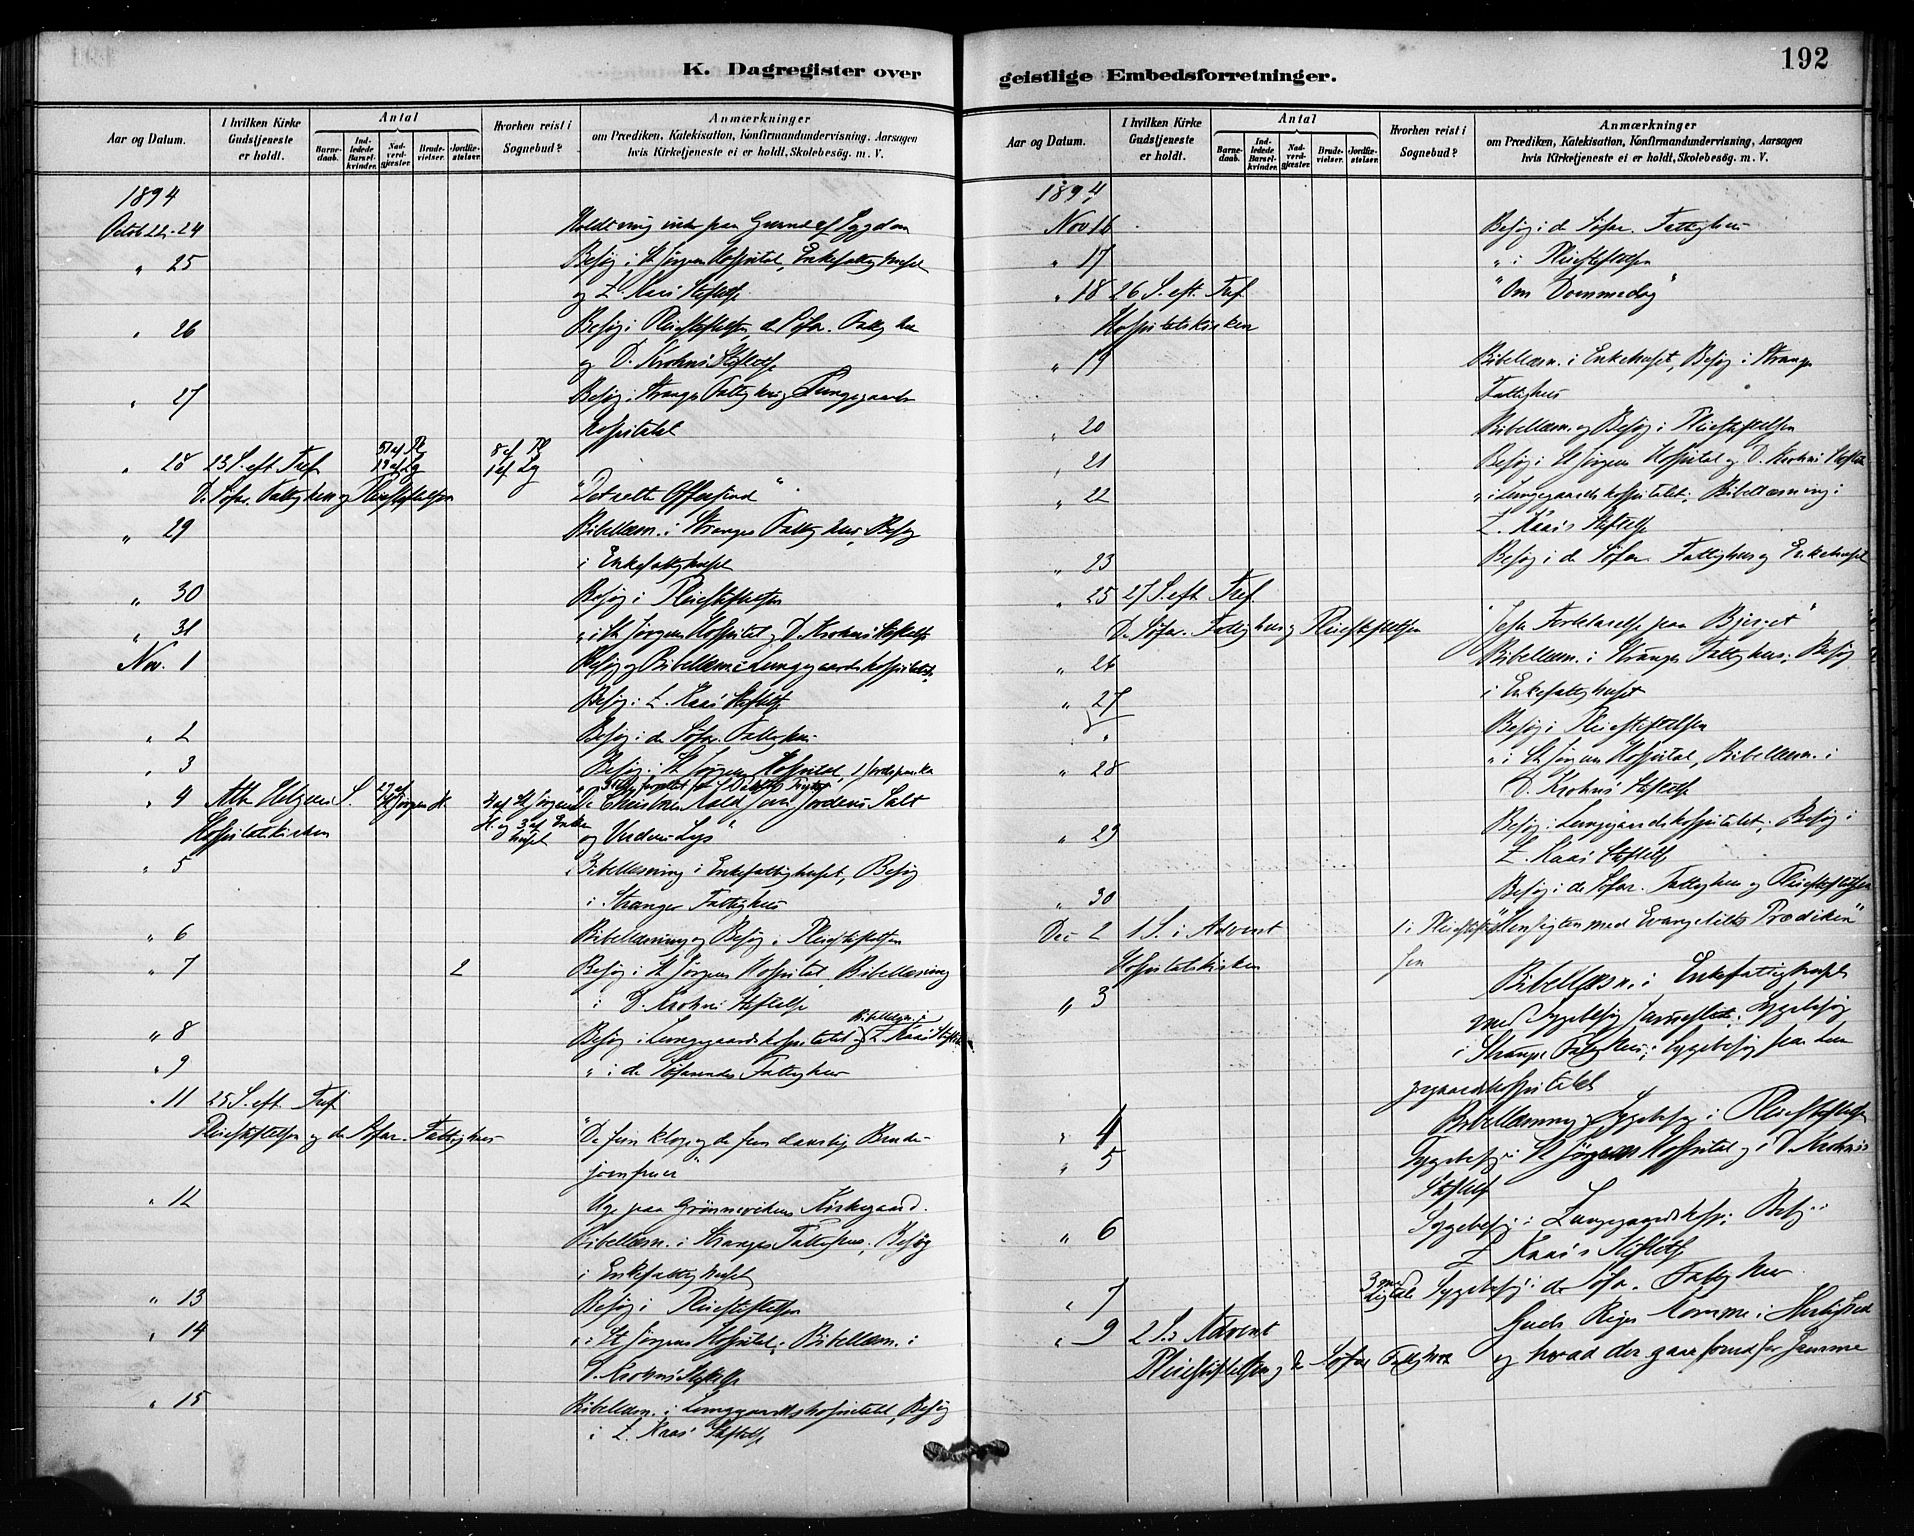 192
K. Dagregister over
geistlige Embedsforretninger.
Aar og Datum.
I hvilken Kirke
Gudstjeneste
er holdt.
Antal
Barne-
daab.
Ind-
ledede
Barsel-
kvinder.
Nad-
verd-
gjester.
Brude-
vielser.
Jordfæ-
stelser.
Hvorhen reist i
Sognebud?
Anmærkninger
om Prædiken, Katekisation, Konfirmandundervisning, Aarsagen
hvis Kirketjeneste ei er holdt, Skolebesøg. m. V.
1894
Octob 22-24
Holdt mig inde paa Grund af Sygdom
" 25
Besøg i St Jørgens Hospital, Enkefattighuset
og Z. Kaas' Stiftelse
" 26
Besøg i Pleiestiftelsen, de Søfar. Fattighus
og D. Krohns Stiftelse
" 27
Besøg i Stranges Fattighus og Lungegaards
hospitalet
" 28 23 S. eft. Tref.
51 af Pl
19 af Lg
8 af Pl
1 af Lg
D. Søfar. Fattighus og Pleiestiftelsen
"Det rette Offersind"
" 29
Bibellæsn. i Stranges Fattighus, Besøg
i Enkefattighuset
" 30
Besøg i Pleiestiftelsen
" 31
" i St Jørgens Hospital og D. Krohns Stiftelse
Nov. 1
Besøg og Bibellæsn. i Lungegaardshospitalet,
Besøg i Z. Kaas' Stiftelse
" 2
Besøg i de Søfar. Fattighus
" 3
Besøg i St Jørgens Hospital, 1 Jordspaaka
" 4 Alle Helgens S.
St Jørgens H.
4 af St Jørgens
H. og 3 af Enke
huset
De Christnes Kald som Jordens Salt
Hospitalskirken
og Verdens Lys"
" 5
Bibellæsning i Enkefattighuset, Besøg
i Stranges Fattighus
" 6
Bibellæsning og Besøg i Pleiestiftelsen
" 7
2
Besøg i St Jørgens Hospital, Bibellæsning
i D. Krohns Stiftelse
" 8
Bibellæsn. i
Besøg i Lungegaardshospitalet og Z. Kaas' Stiftelse
" 9
" i de Søfarendes Fattighus
" 11 25 S. eft. Tref.
Pleiestiftelsen og de Søfar. Fattighus
"De fem kloge og de fem daarlige Brude-
jomfruer"
" 12
Uge paa Grønnevikens Kirkegaard.
Bibellæsn. i Stranges Fattighus, Besøg
i Enkefattighuset
" 13
Besøg i Pleiestiftelsen
" 14
" i St Jørgens Hospital; Bibellæsn. i
D. Krohns Stiftelse
" 15
Bibellæsn. i Lungegaardshospitalet, Besøg
i Z. Kaas' Stiftelse
Aar og Datum.
I hvilken Kirke
Gudstjeneste
er holdt.
Antal
Barne-
daab.
Ind-
ledede
Barsel-
kvinder.
Nad-
verd-
gjester.
Brude-
vielser.
Jordfæ-
stelser.
Hvorhen reist i
Sognebud?
Anmærkninger
om Prædiken, Katekisation, Konfirmandundervisning, Aarsagen
hvis Kirketjeneste ei er holdt, Skolebesøg. m. V.
1894
Nov 16
Besøg i de Søfar. Fattighus
" 17
" i Pleiestiftelsen
" 18 26 S. eft. Tref.
"Om Dommedag"
Hospitalskirken
" 19
Bibellæsn. i Enkehuset, Besøg i Stranges
Fattighus
" 20
Bibellæsn. og Besøg i Pleiestiftelsen
" 21
Besøg i St Jørgens Hospital og D. Krohns Stiftelse
" 22
" i Lungegaardshospitalet; Bibellæsning i
Z. Kaas's Stiftelse
" 23
Besøg i de Søfar. Fattighus og Enkehuset
" 25 27 S. eft. Tref.
D. Søfar. Fattighus og Pleiestiftelsen
"Jesu Forklarelse paa Bjerget"
" 26
Bibellæsn. i Stranges Fattighus; Besøg
i Enkefattighuset
" 27
Besøg i Pleiestiftelsen
" 28
" i St Jørgens Hospital, Bibellæsn. i
D. Krohns Stiftelse
" 29
Besøg i Lungegaardshospitalet; Besøg i
Z. Kaas' Stiftelse
" 30
Besøg i de Søfar. Fattighus og Pleiestiftelsen
Dec 2 1 S. i Advent
1 i Pleiestiftel
sen
"Hensigten med Evangeliets Prædiken"
Hospitalskirken
" 3
Bibellæsn. i Enkefattighuset
med Sygebesøg sammesteds; Sygebesøg
i Strange Fattighus; Sygebesøg paa Lun
gegaardshospitalet
" 4
Bibellæsning og Sygebesøg i Pleiestiftelsen
" 5
Sygebesøg i St Jørgens Hospital og i D. Krohns
Stiftelse
" 6
Sygebesøg i Lungegaardshosp; Besøg i
Z Kaas's Stiftelse
" 7
Sygebesøg i de Søfa. Fattighus
" 9 2 S. i Advent
Guds Riges Komme i Herlighed
Pleiestiftelsen og de Søfar Fattighus
og hvad der gaar forud for samme